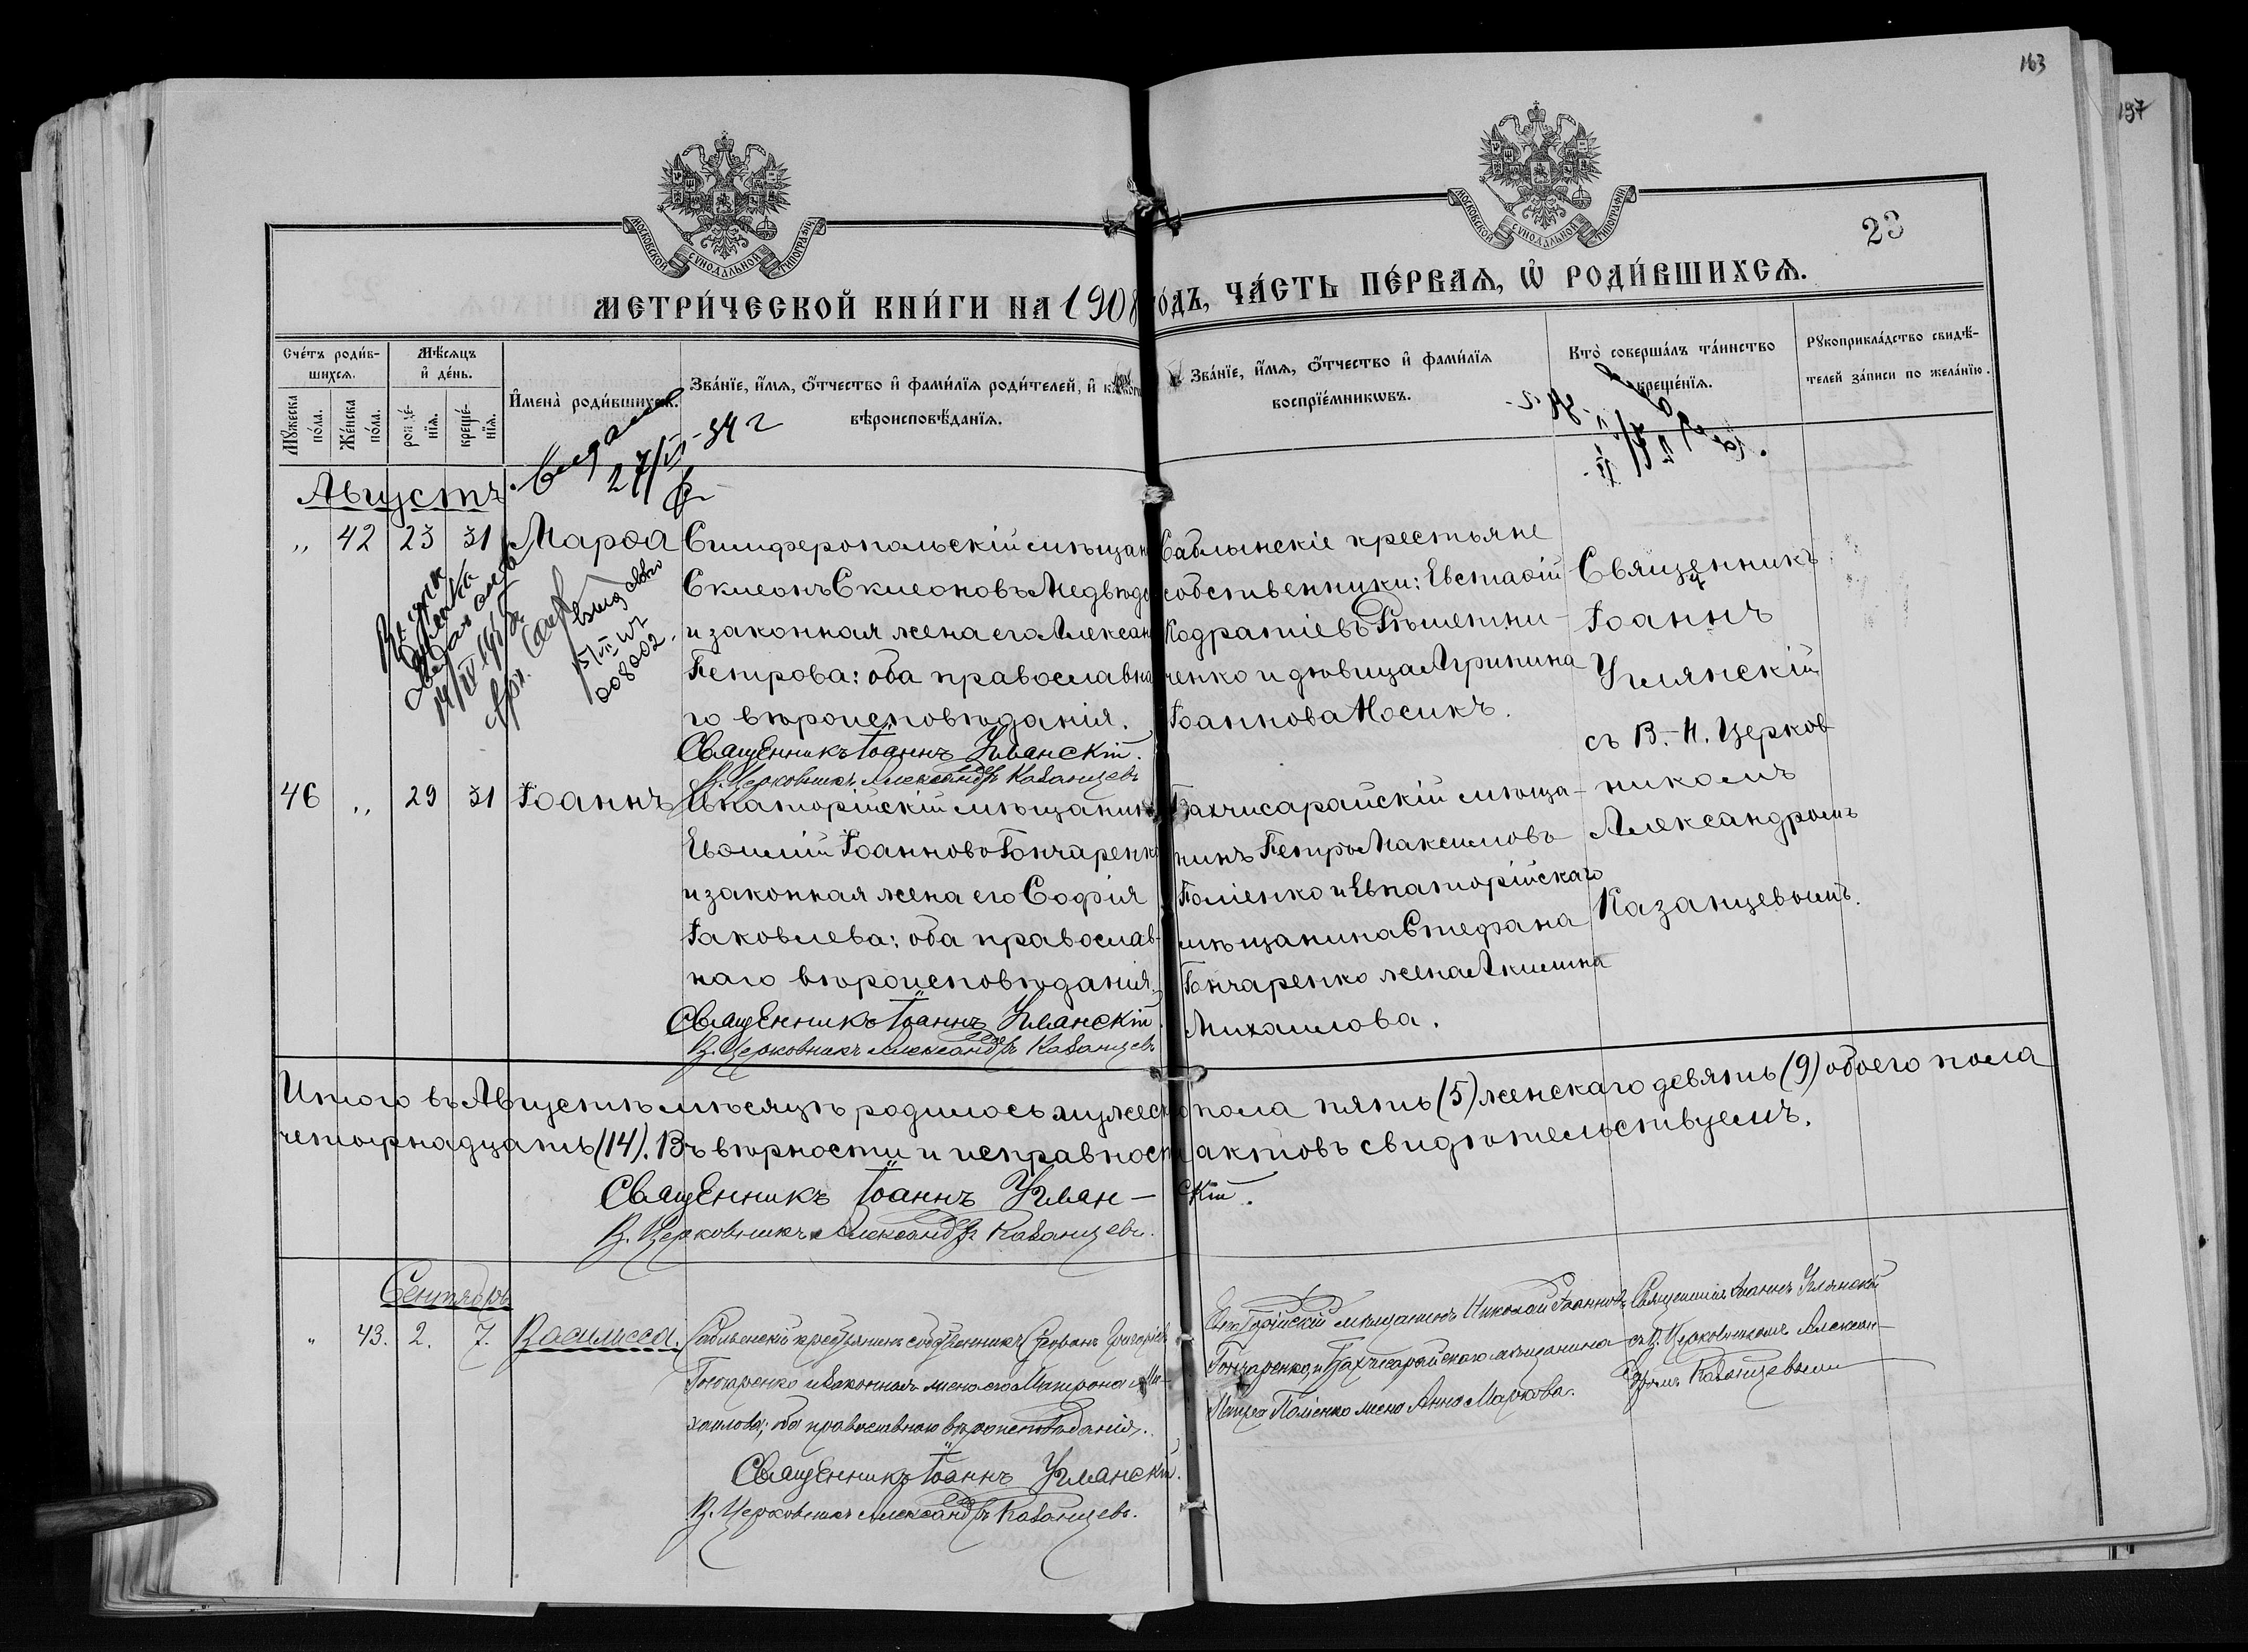 163
197
МОСКОВСКОЙ СѴНОДАЛЬНОЙ ТИПОГРАФІИ
МОСКОВСКОЙ СѴНОДАЛЬНОЙ ТИПОГРАФІИ
23
МЕТРИ́ЧЕСКОЙ КНИ́ГИ НА 1908
О́ДЪ, ЧА́СТЬ ПЕ́РВАѦ, Ѽ РОДИ́ВШИХСѦ.
Сче́тъ роди́в-
шихсѧ.
Мꙋ́жеска по́ла.
Же́нска по́ла.
Мѣ́сѧцъ
и҆ де́нь.
рожде́-
нїѧ.
креще́-
нїѧ.
И҆мена̀ роди́вшихсѧ.
Зва́нїе, и҆́мѧ, ѻ҆́тчество и҆ фами́лїѧ роди́телей, и҆ како́гѡ
вѣроисповѣ́данїѧ.
Зва́нїе, и҆́мѧ, ѻ҆́тчество и҆ фами́лїѧ
воспрїе́мникѡвъ.
Кто̀ соверша́лъ та́инство
креще́нїѧ.
Рꙋкоприкла́дство свидѣ́-
телей за́писи по жела́нїю.
27/VI - 34 г
Августъ
„ 42 23 31 Марѳа
Симферопольскій мѣщан
Симеонъ Симеоновъ Медвѣде
и законная жена его Алексан
Петрова: оба православна
го вѣроисповѣданія.
Священникъ Іоаннъ Углянскій.
В. Церковникъ Александръ Казанцевъ
Саблынскіе крестьяне
собственники: Евстаѳій
Кодратіевъ Рѣшетни-
ченко и дѣвица Агрипина
Іоаннова Носикъ.
Священникъ
Іоаннъ
Углянскій
съ В.-Н. Церков
никомъ
Александромъ
Казанцевымъ.
008002.
46 „ 29 31 Іоаннъ
Евпаторійскій мѣщанинъ
Евѳимій Іоанновъ Гончаренко
и законная жена его Софія
Іаковлева: оба православ-
наго вѣроисповѣданія.
Священникъ Іоаннъ Углянскій.
В. Церковникъ Александръ Казанцевъ
Бахчисарайскій мѣща-
нинъ Петръ Максимовъ
Поліенко и Евпаторійскаго
мѣщанина Стефана
Гончаренко жена Акилина
Михаилова.
Итого въ Августѣ мѣсяцѣ родилось мужеск пола пять (5) женскаго девять (9) обоего пола
четырнадцать (14). Въ вѣрности и исправност актовъ свидѣтельствуемъ.
Священникъ Іоаннъ Углян-скій.
В. Церковникъ Александръ Казанцевъ.
Сентябрь
„ 43. 2. 7. Василисса.
Саблынскій крестьянинъ собственникъ Стефанъ Григоріевъ
Гончаренко и законная жена его Матрона Ми-
хаилова; оба православнаго вѣроисповѣданія.
Священникъ Іоаннъ Углянскій.
В. Церковникъ Александръ Казанцевъ.
Евпаторійскій мѣщанинъ Николай Іоанновъ
Гончаренко и Бахчисарайскаго мѣщанина
Петра Поліенко жена Анна Маркова.
Священникъ Іоаннъ Углянскій
съ В. Церковникомъ Алексан-
дромъ Казанцевымъ